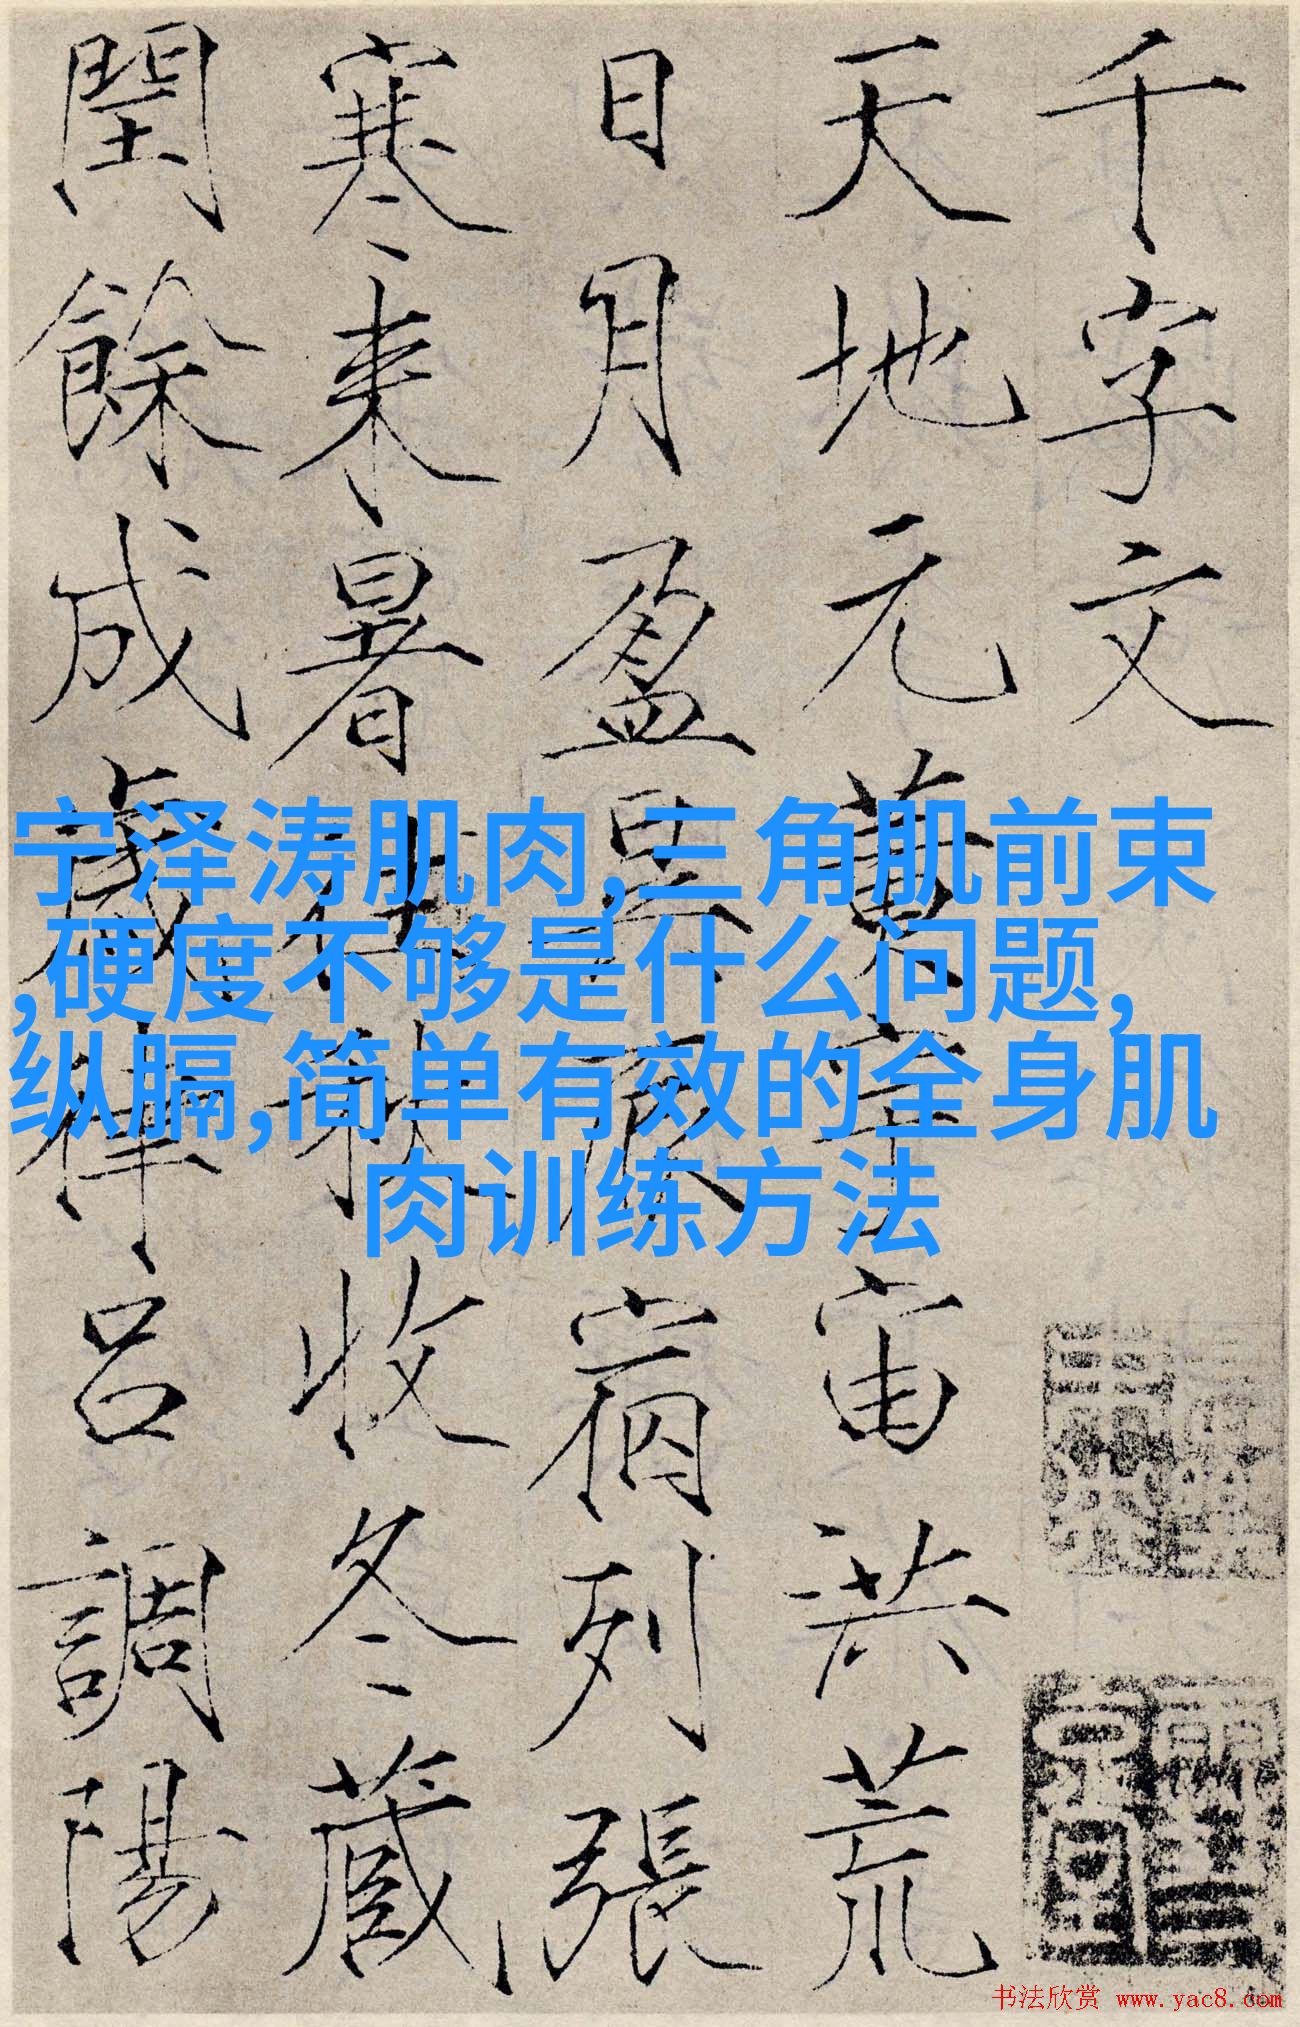 千字文
天地元黃宇宙洪荒
日月盈昃辰宿列張
寒来暑往秋收冬藏
閏餘成歲律呂調陽
宁泽涛肌肉,三角肌前束
,硬度不够是什么问题,
纵膈,简单有效的全身肌
肉训练方法
书法欣赏 www.yac8.com